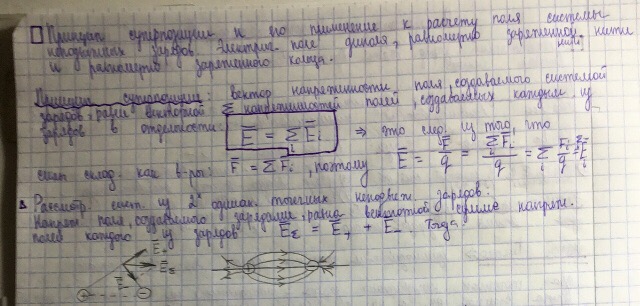 Принцип суперпозиции и его применение к расчету поля системы
неподвижных зарядов. Электрич. поле диполя, равномерно заряженной нити
и равномерно заряженного кольца.
Принцип суперпозиции: вектор напряженности поля, создаваемого системой
зарядов, равен векторной Σ напряженностей полей, создаваемых каждым из
зарядов в отдельности: E̅ = Σ E̅i ⇒ это след. из того, что
силы склад. как в-ры: F̅ = Σ F̅i, поэтому E̅ = F̅/q = Σ F̅i/q = Σ F̅i/q
Рассмотр. сист. из 2х одинак. точечных неподвиж. зарядов.
Напряж. поля, создаваемого зарядами, равна векторной сумме напряж.
полей каждого из зарядов E̅Σ = E̅+ + E̅- Тогда:
E̅+
E̅Σ
E̅-
+ -